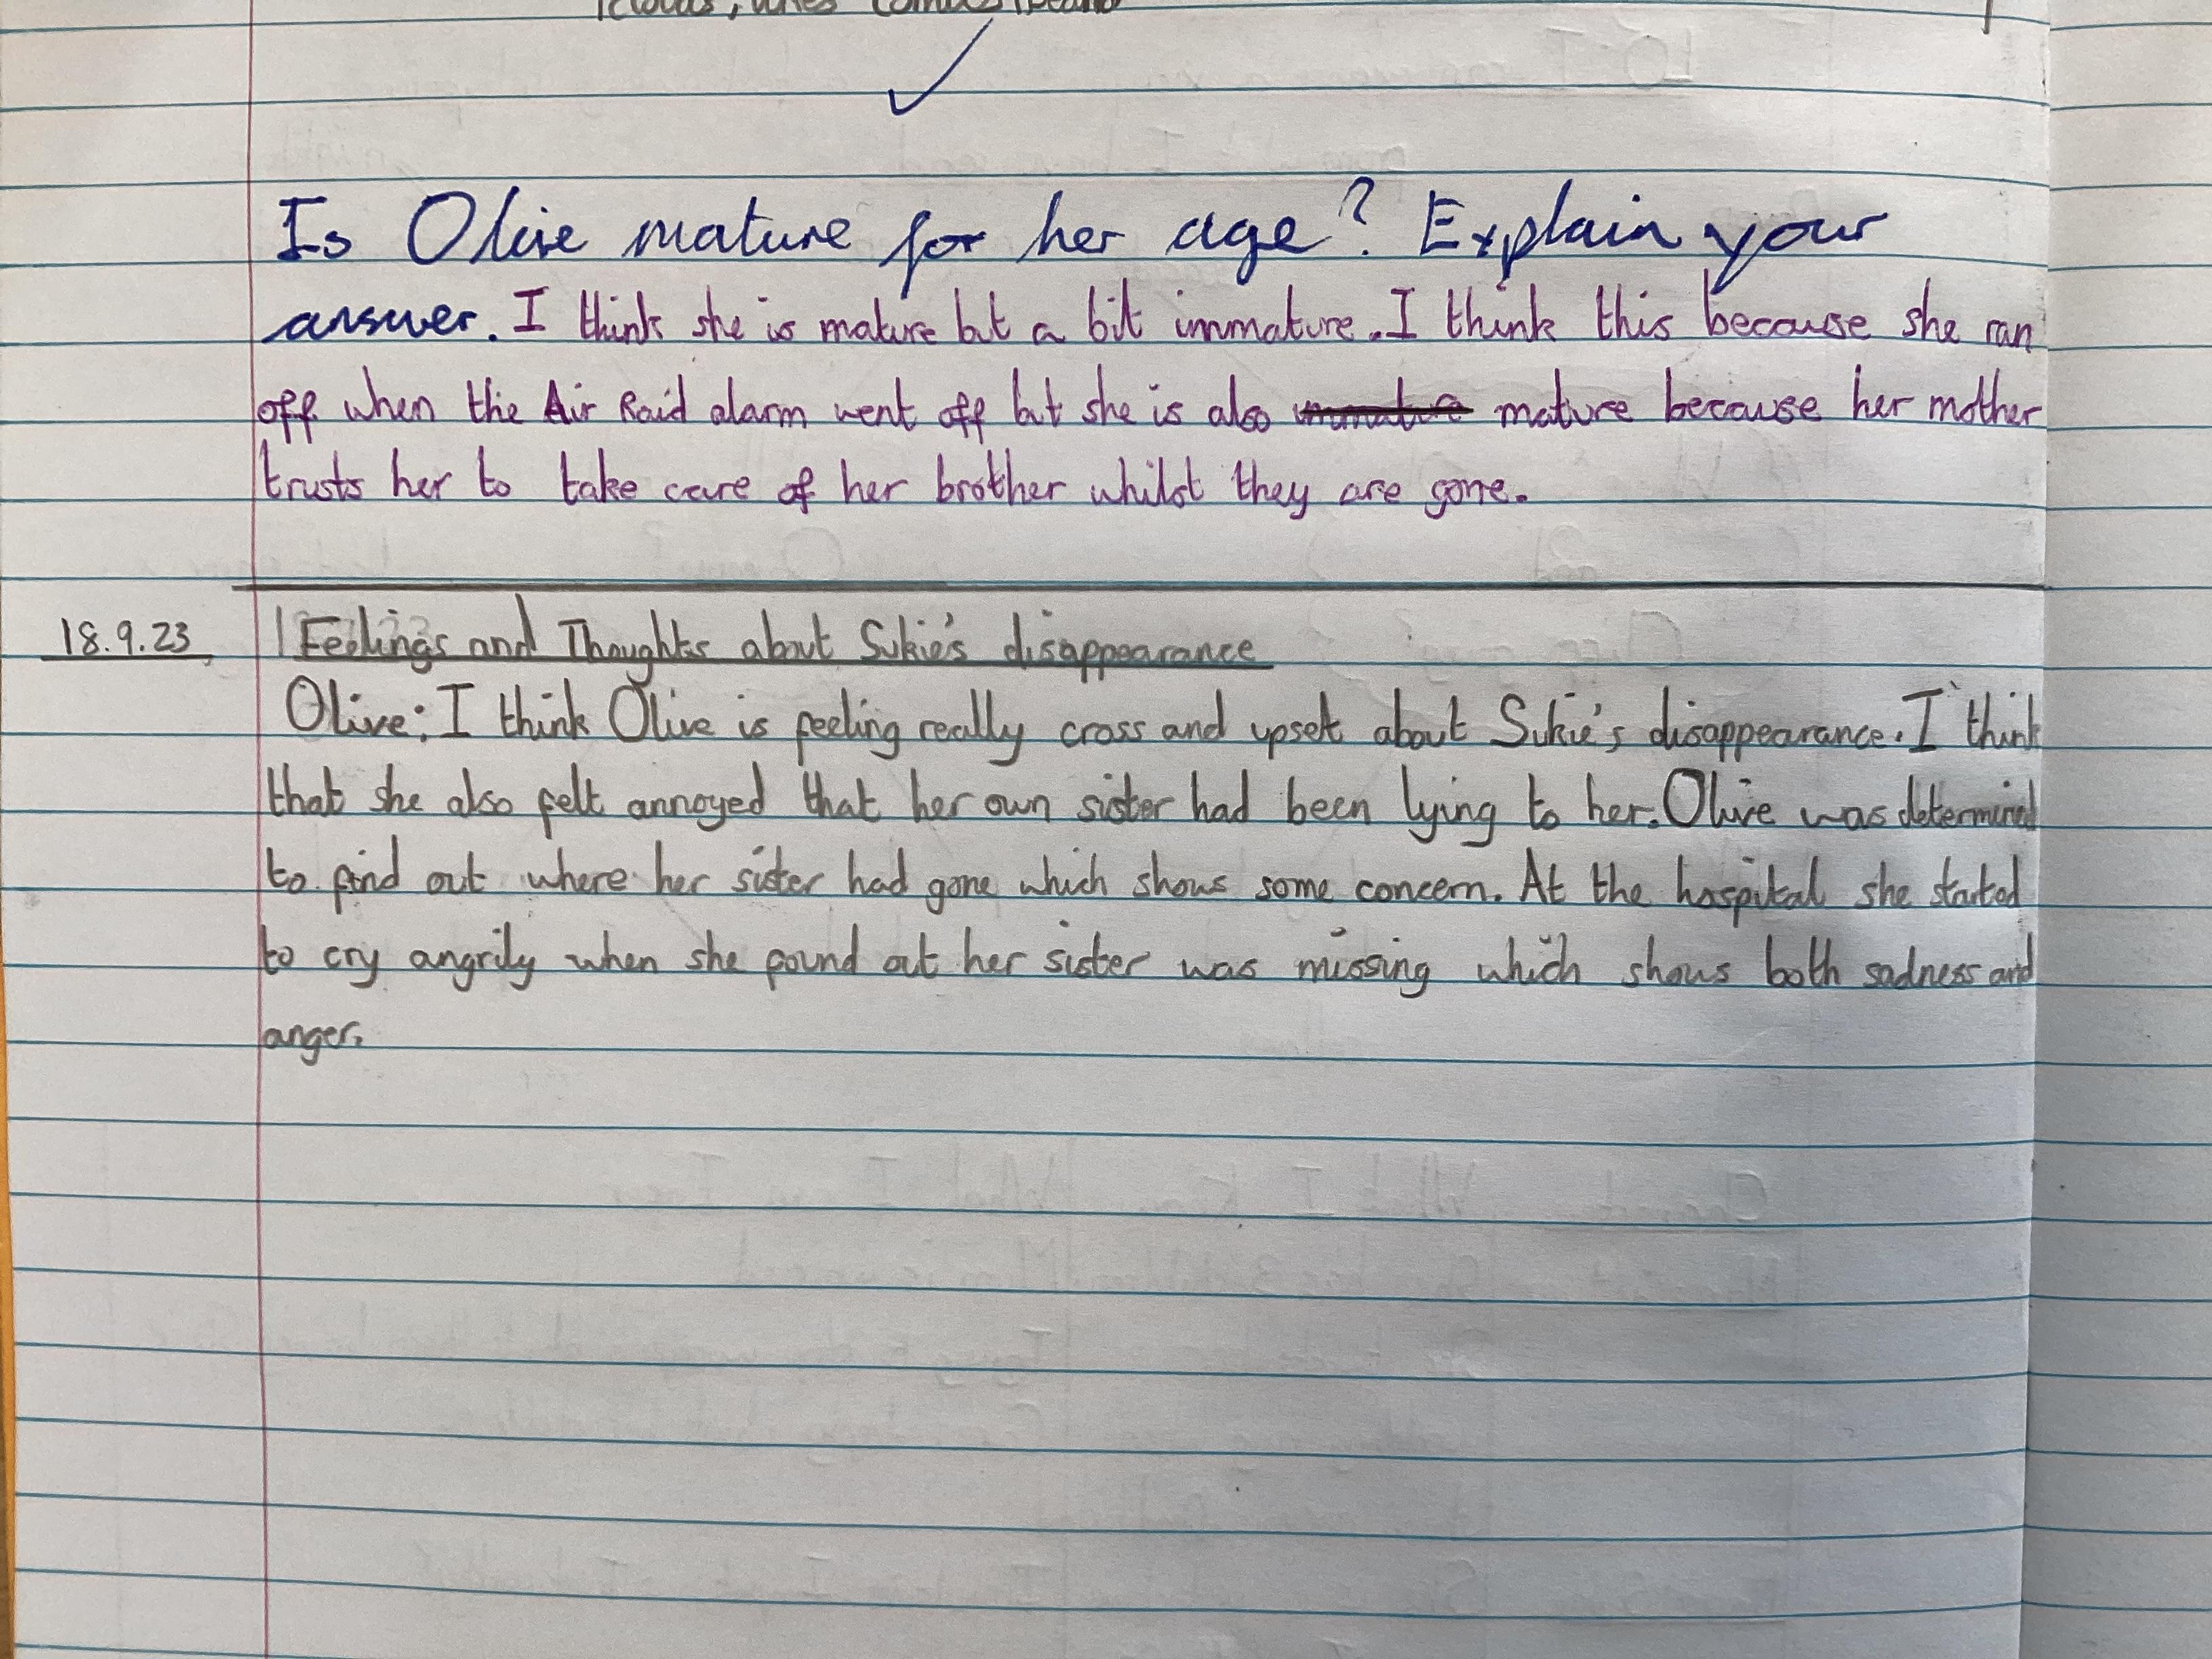 Is Olive mature for her age? Explain your
answer. I think she is mature but a bit immature. I think this because she ran
off when the Air Raid alarm went off but she is also immature mature because her mother
trusts her to take care of her brother whilst they are gone.
18.9.23 Feelings and Thoughts about Sukie's disappearance
Olive: I think Olive is feeling really cross and upset about Sukie's disappearance. I think
that she also felt annoyed that her own sister had been lying to her. Olive was determined
to find out where her sister had gone which shows some concern. At the hospital she started
to cry angrily when she found out her sister was missing which shows both sadness and
anger.